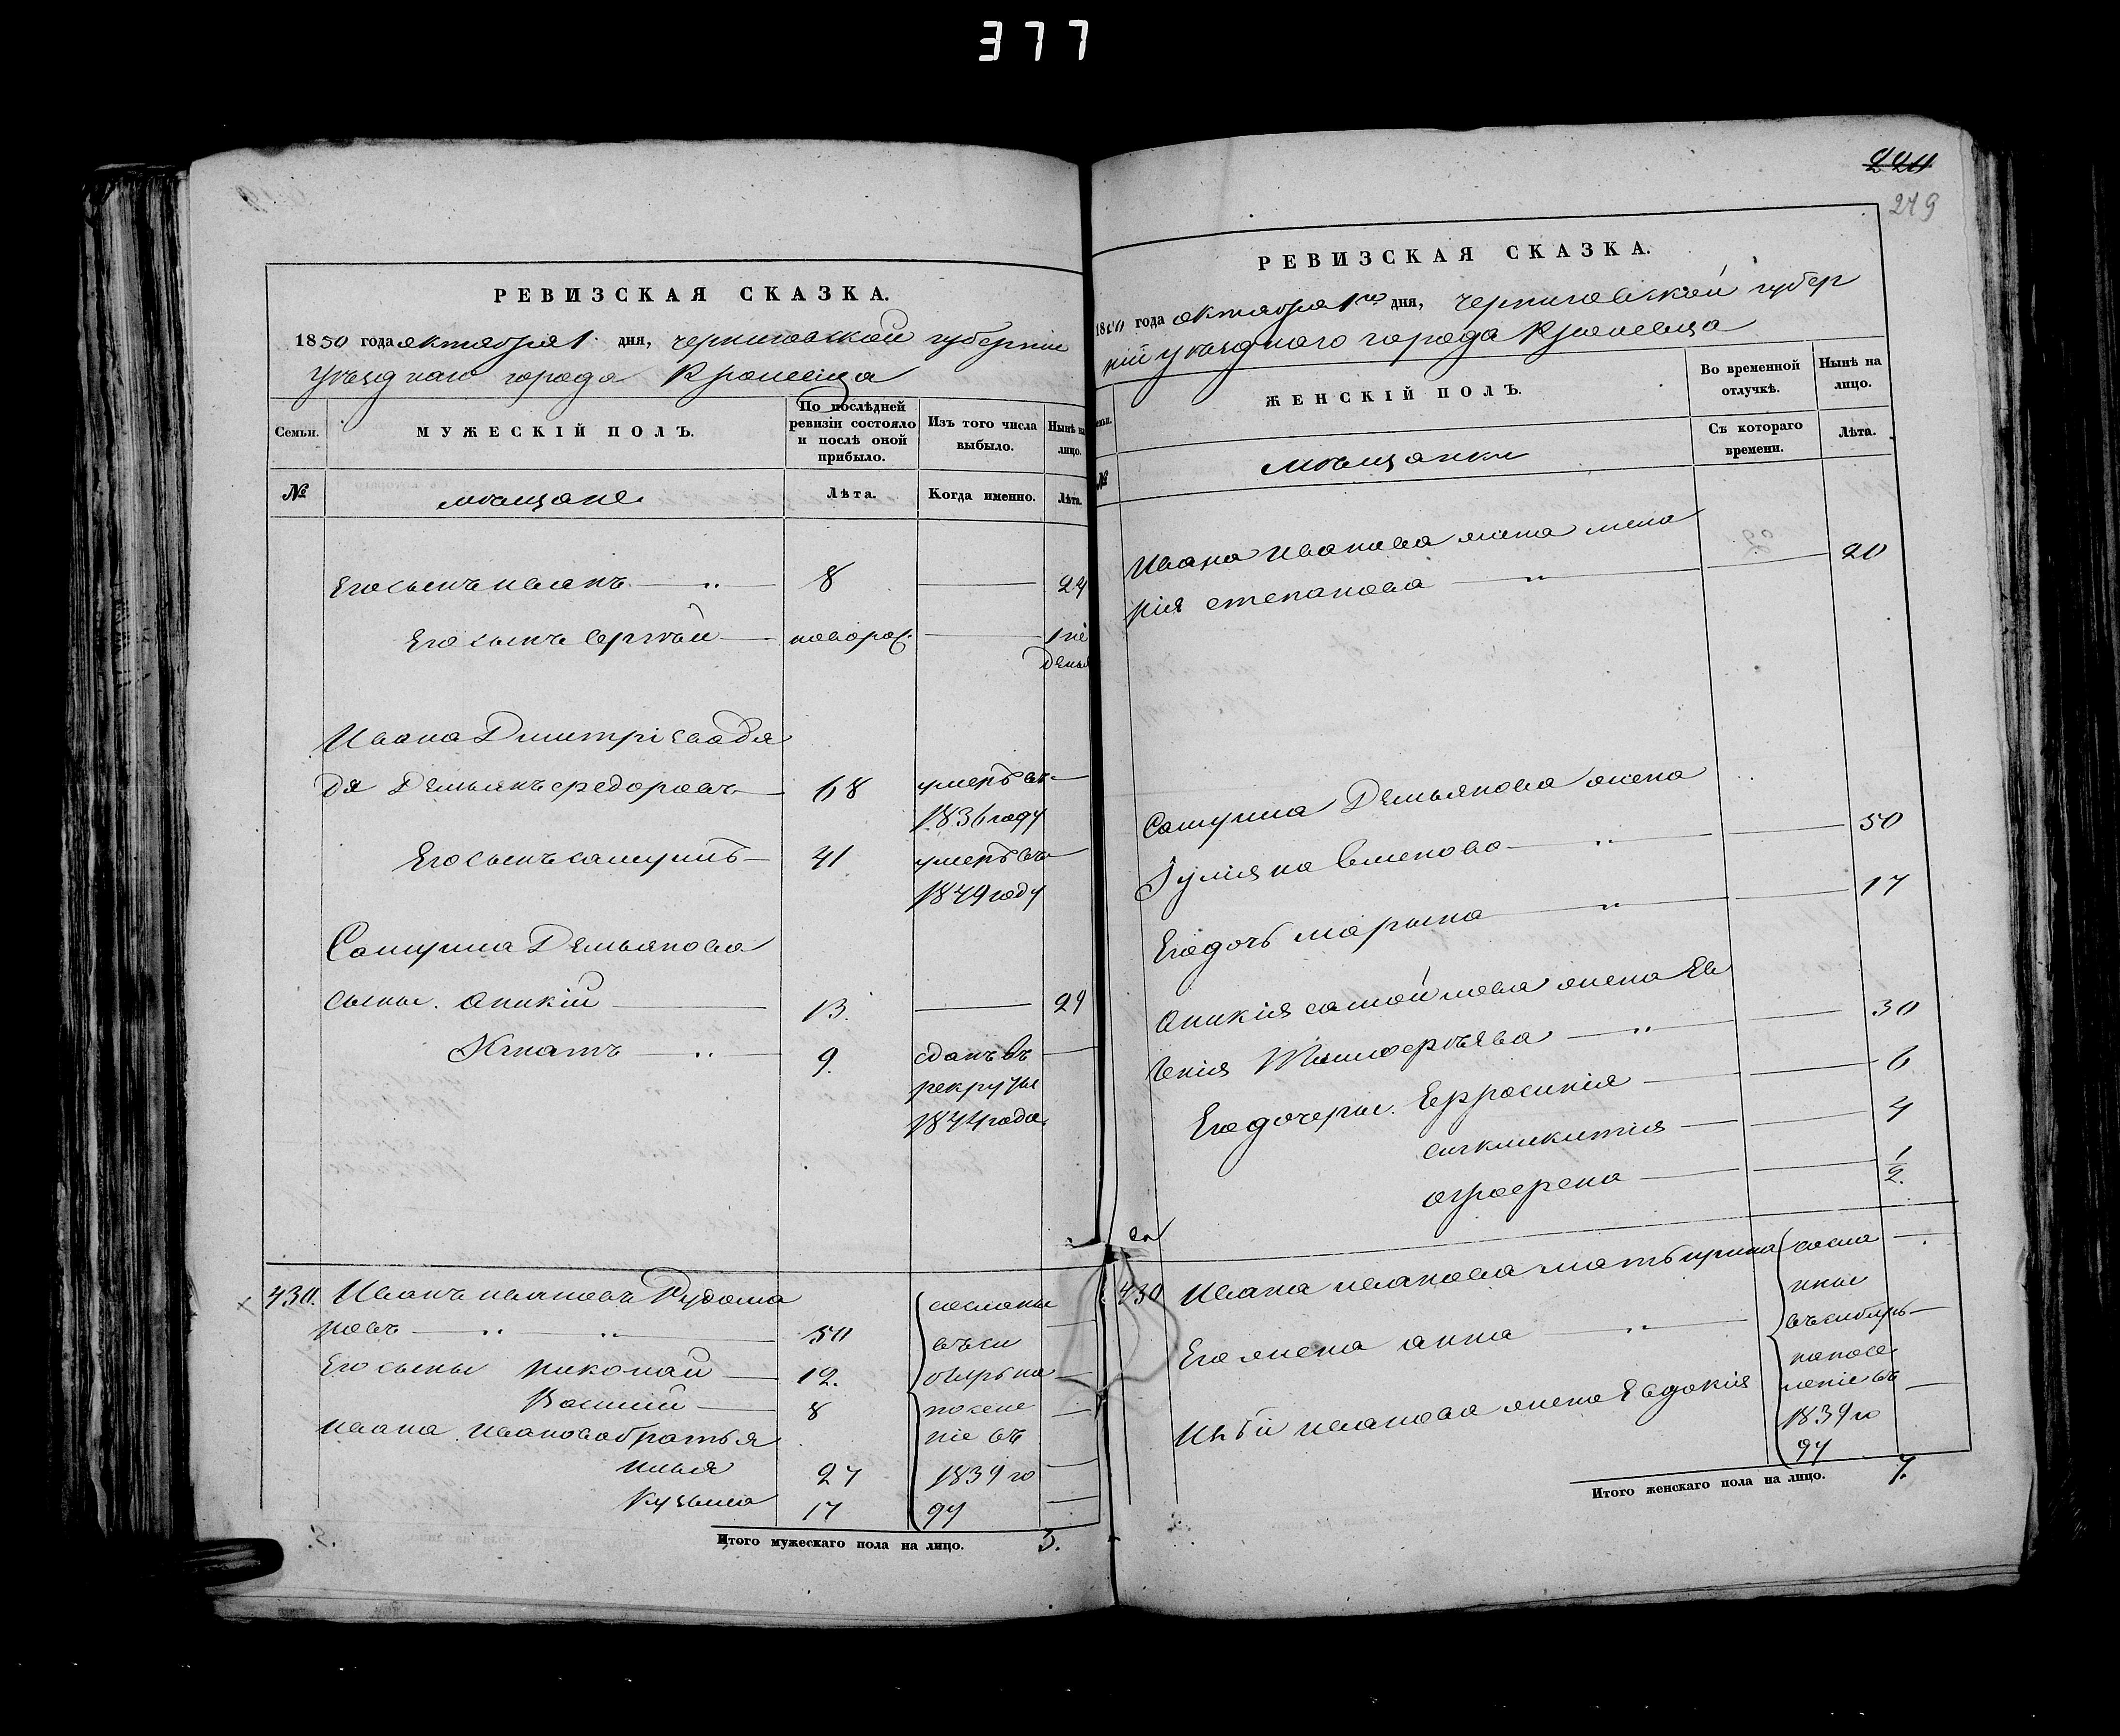 377
РЕВИЗСКАЯ СКАЗКА.
1850 года октября 1 дня, черниговской губернии
уѣзднаго города Кролевца
Семьи.
МУЖЕСКІЙ ПОЛЪ.
По послѣдней ревизіи состояло и послѣ оной прибыло.
Изъ того числа выбыло.
Нынѣ на лицо.
№
мѣщане
Лѣта.
Когда именно.
Лѣта.
Его сынъ иванъ 8 24
Его сынъ Сергѣй новорож.
Ивана Дмитріева дя
дя Демьянъ федоровъ 68 умеръ въ
1836 году
Его сынъ самуилъ 41 умеръ въ
1849 году
Самуила Демьянова
сыны. аникій 13. 29
Игнатъ 9. сданъ въ
рекруты
1844 года.
430. Иванъ ивановъ Рудома
новъ 50 сосланы
въ си
Его сыны николай 12. биръ на
Василій 8 посе
Ивана Иванова братья ніе въ
илья 27 1839 го
Кузьма 17 ду
Итого мужескаго пола на лицо. 3.
224
249
РЕВИЗСКАЯ СКАЗКА.
1850 года октября 1го дня, черниговской губер
ніи уѣзднаго города Кролевца
ЖЕНСКІЙ ПОЛЪ.
Во временной отлучкѣ.
Нынѣ на лицо.
№
мѣщанки
Съ котораго времени.
Лѣта.
Ивана Иванова жена ма
рія степанова 20
Самуила Демьянова жена
Іуліяна Семенова 50
Его дочь марьяна 17
аникія самойлова жена Ев
генія Тимофѣева 30
Его дочери. Ефросинія 6
синклитикія 4
агрофена 1/2.
430 Ивана иванова мать ирина сосла
ны
Его жена анна въ сибирь
на посе
Ильи иванова жена Евдокія леніе въ
1839 го
ду
Итого женскаго пола на лицо. 7.